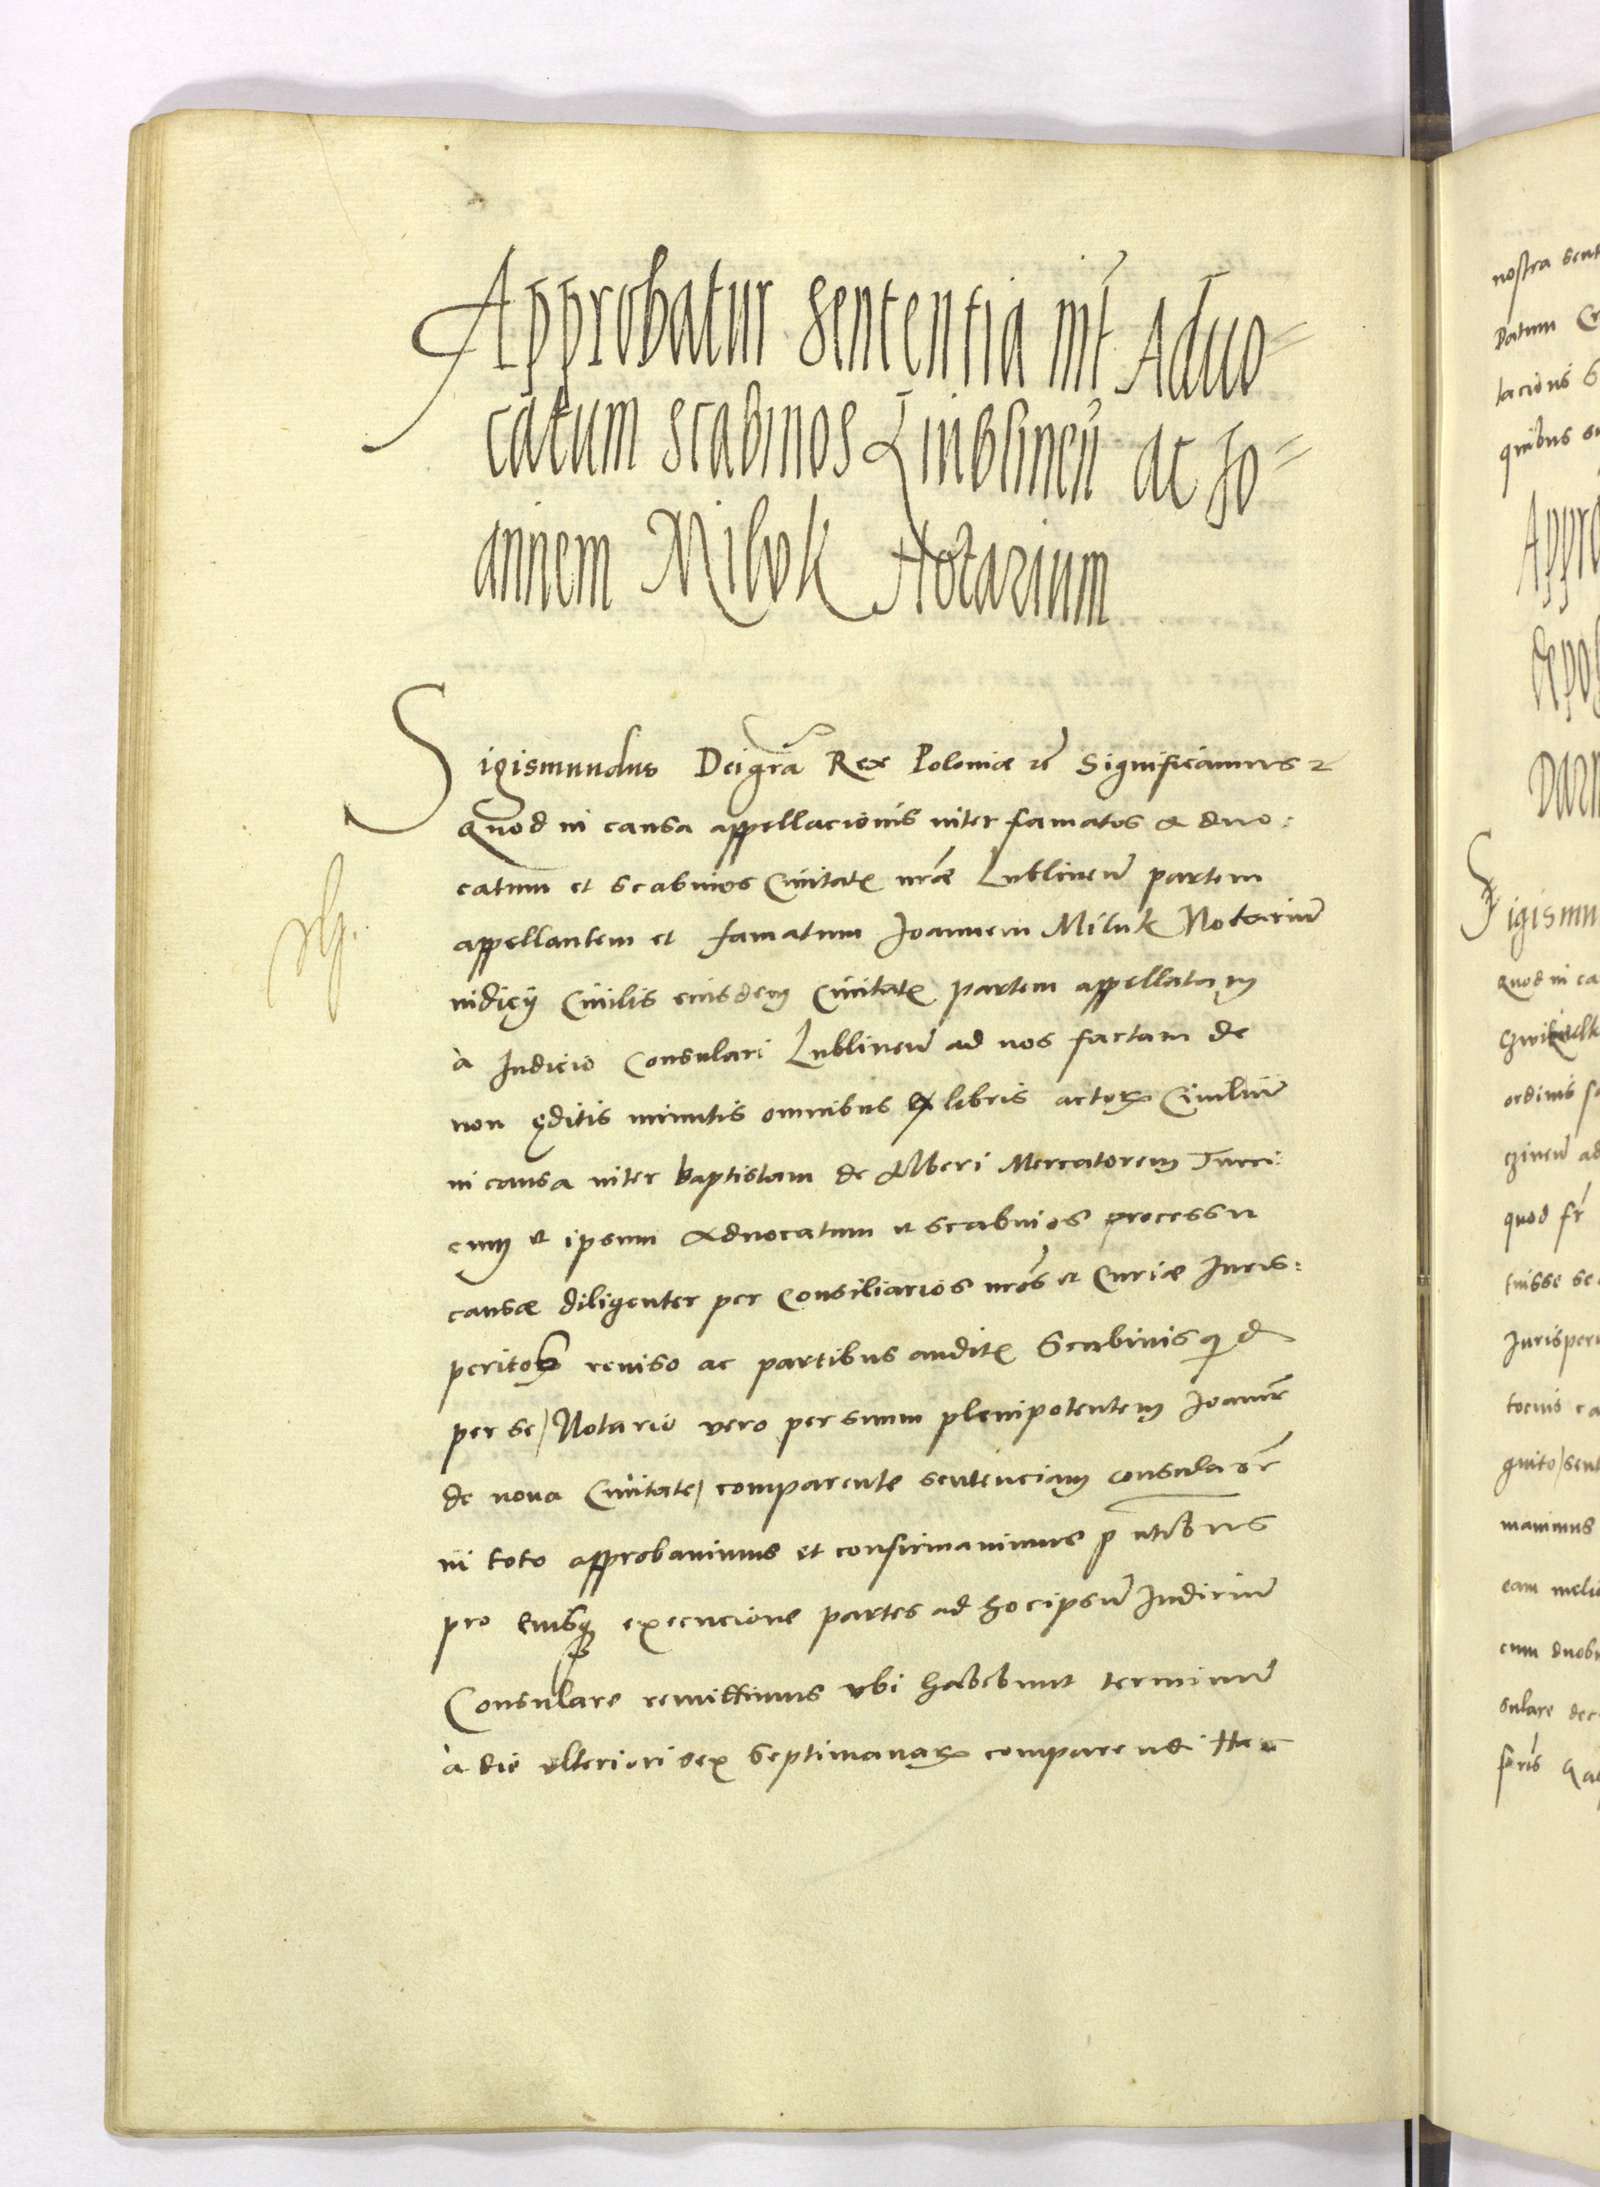 Approbatur sententia int Aduo=
catum scabinos Lublineñ ac Jo=
annem Miluk Notarium
Sigismundus Dei gra Rex Poloniæ etc Significamus etc
Quod in causa appellacionis inter famatos Aduo:
catum et scabinos Ciuitatis nræ Lublineñ partem
appellantem et famatum Joannem Miluk Notariũ
iudicij Ciuilis eiusdem Ciuitatis partem appellatam
à Judicio Consulari Lublineñ ad nos factam de
non ęditis minutis omnibus ex libris actorum Ciuiliũ
in causa inter Baptistam de Alberi Mercatorem Turci:
cum et ipsum Aduocatum et scabinos processu
causæ diligenter per Consiliarios nros et Curiæ Juris:
peritos reuiso ac partibus auditis Scabinis qd
per se / Notario vero per suum plenipotentem Joannẽ
de noua Ciuitate / comparente sentenciam consularẽ
in toto approbauimus et confirmauimus p ntibus
pro eiusq execucione partes ad hoc ipsũ Judiciũ
Consulare remittimus vbi habebunt terminũ
à die vlteriori sex Septimanarum comparendi Hac
nostra sent
Datum Cr
lacionis S
quibus su
Appro
depos
Darn
Sigismu
Quod in ca
ordinis
czineñ ad
quod fr
tuisse se
Jurisperi
tocius ca
guito / sent
mauimus
eam meli
cum duobu
sulare dec